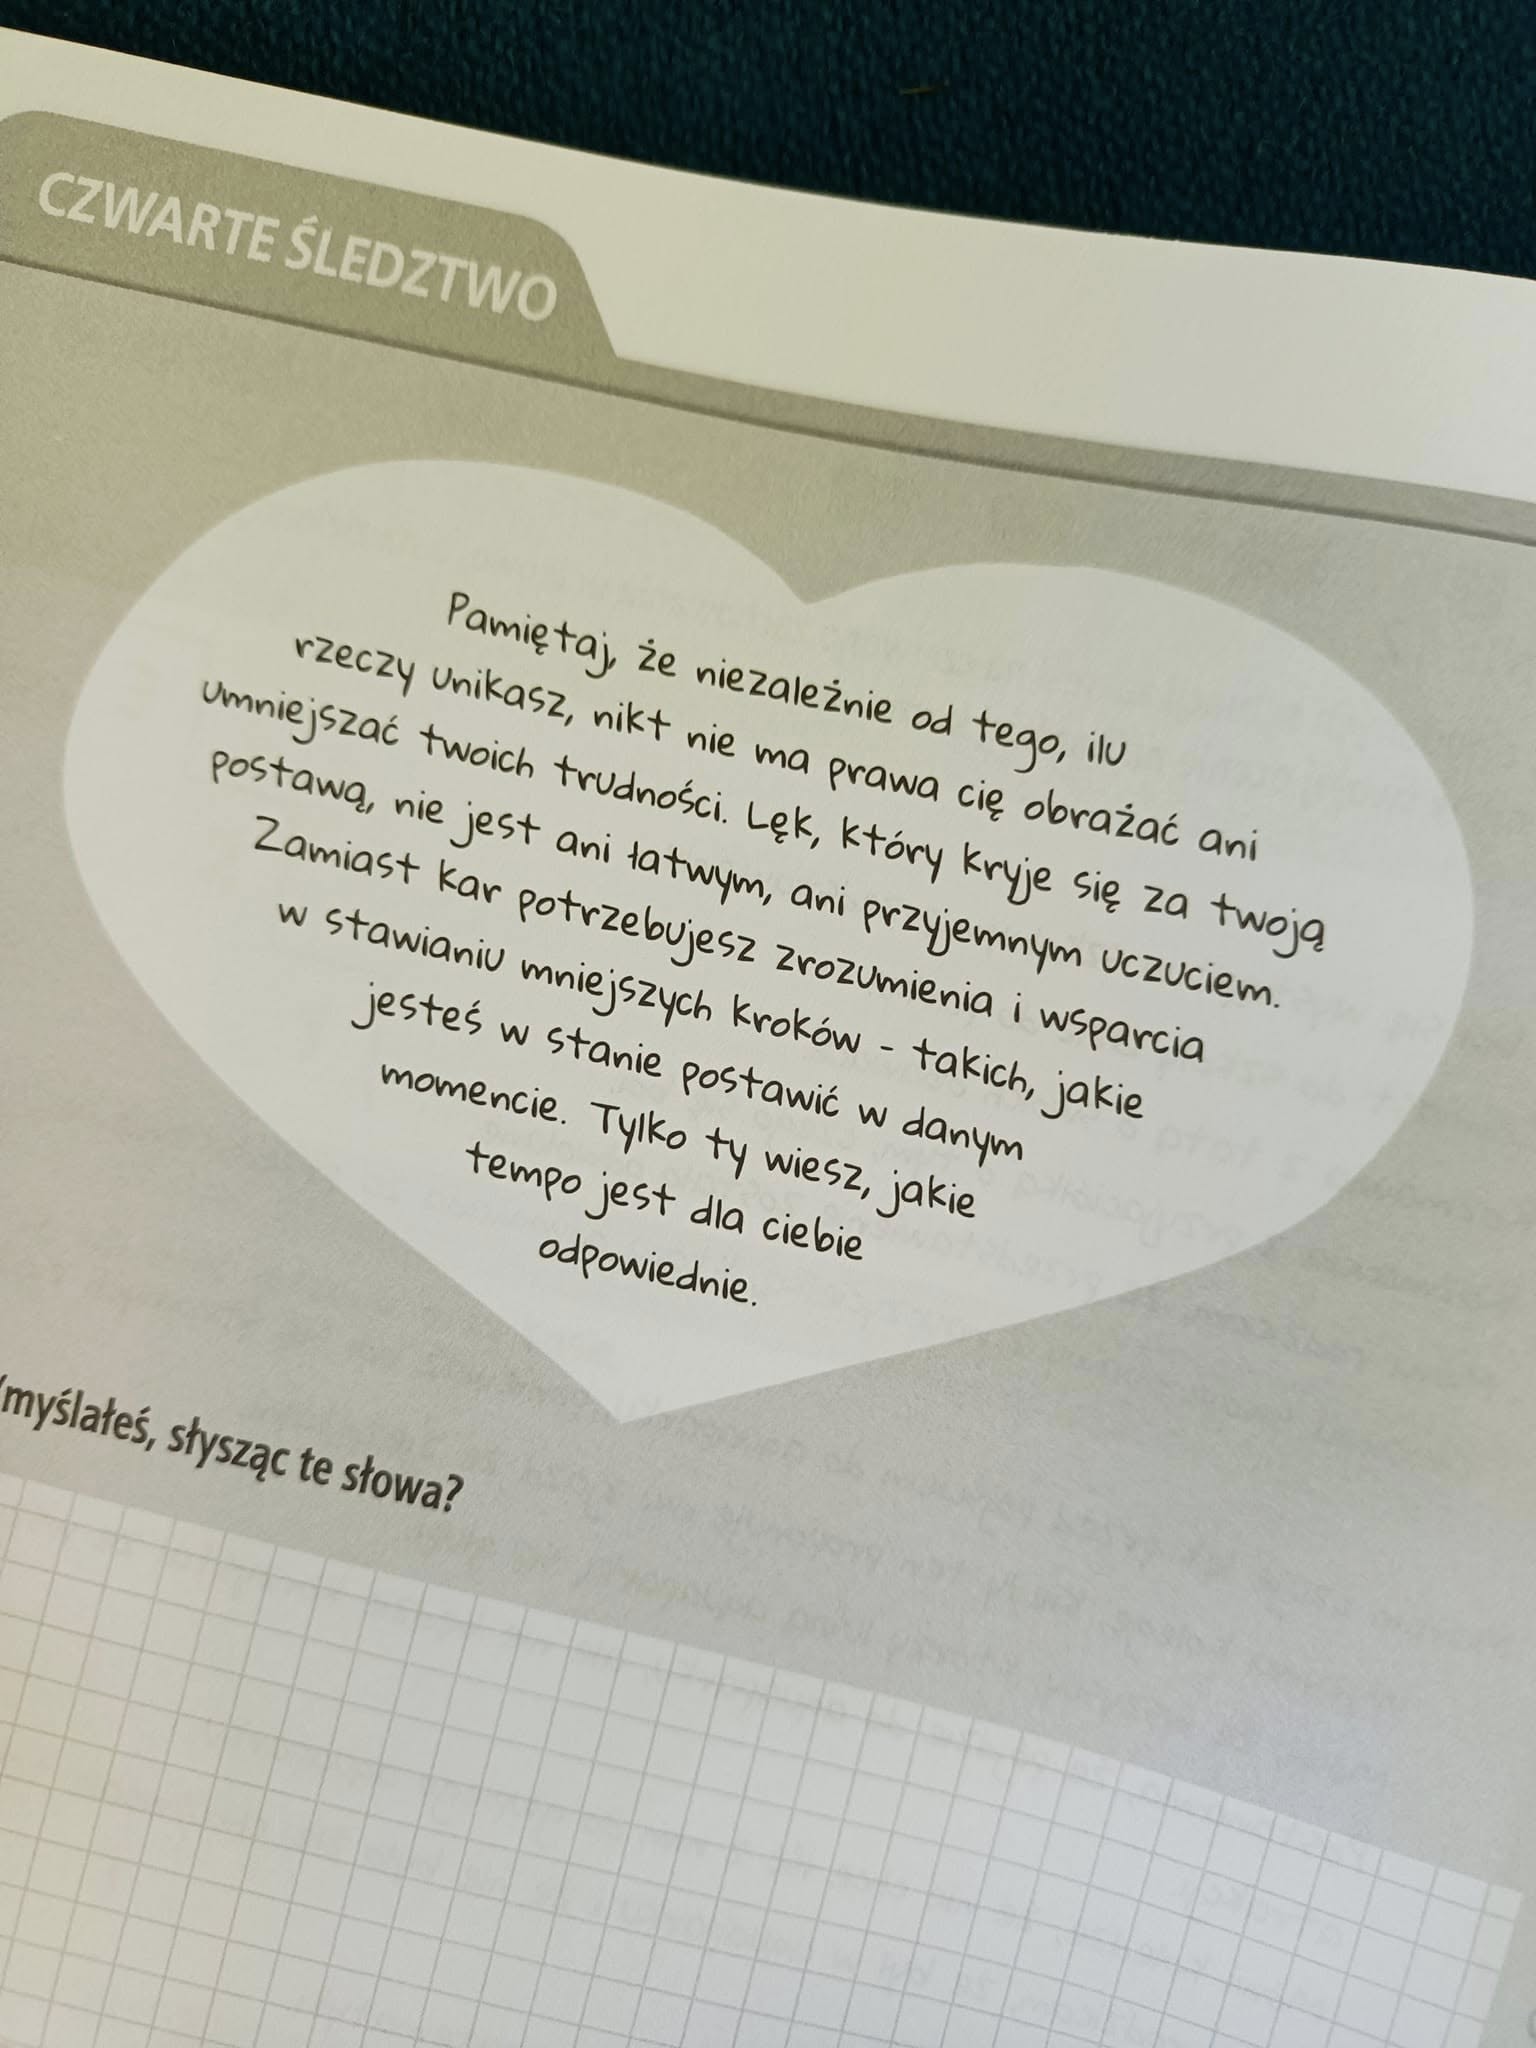 CZWARTE ŚLEDZTWO
Pamiętaj, że niezależnie od tego, ilu
rzeczy unikasz, nikt nie ma prawa cię obrażać ani
umniejszać twoich trudności. Lęk, który kryje się za twoją
postawą, nie jest ani łatwym, ani przyjemnym uczuciem.
Zamiast kar potrzebujesz zrozumienia i wsparcia
w stawianiu mniejszych kroków - takich, jakie
jesteś w stanie postawić w danym
momencie. Tylko ty wiesz, jakie
tempo jest dla ciebie
odpowiednie.
myślałeś, słysząc te słowa?